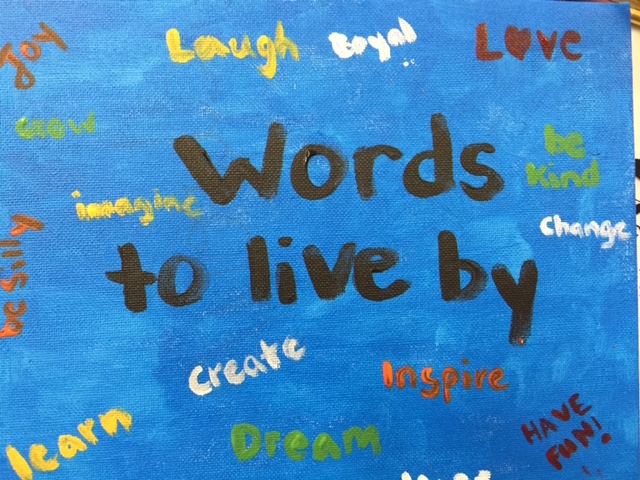 Joy
Laugh
Loyal
Love
Grow
Words
be
kind
imagine
change
be silly
to live by
create
Inspire
learn
Dream
HAVE
FUN!